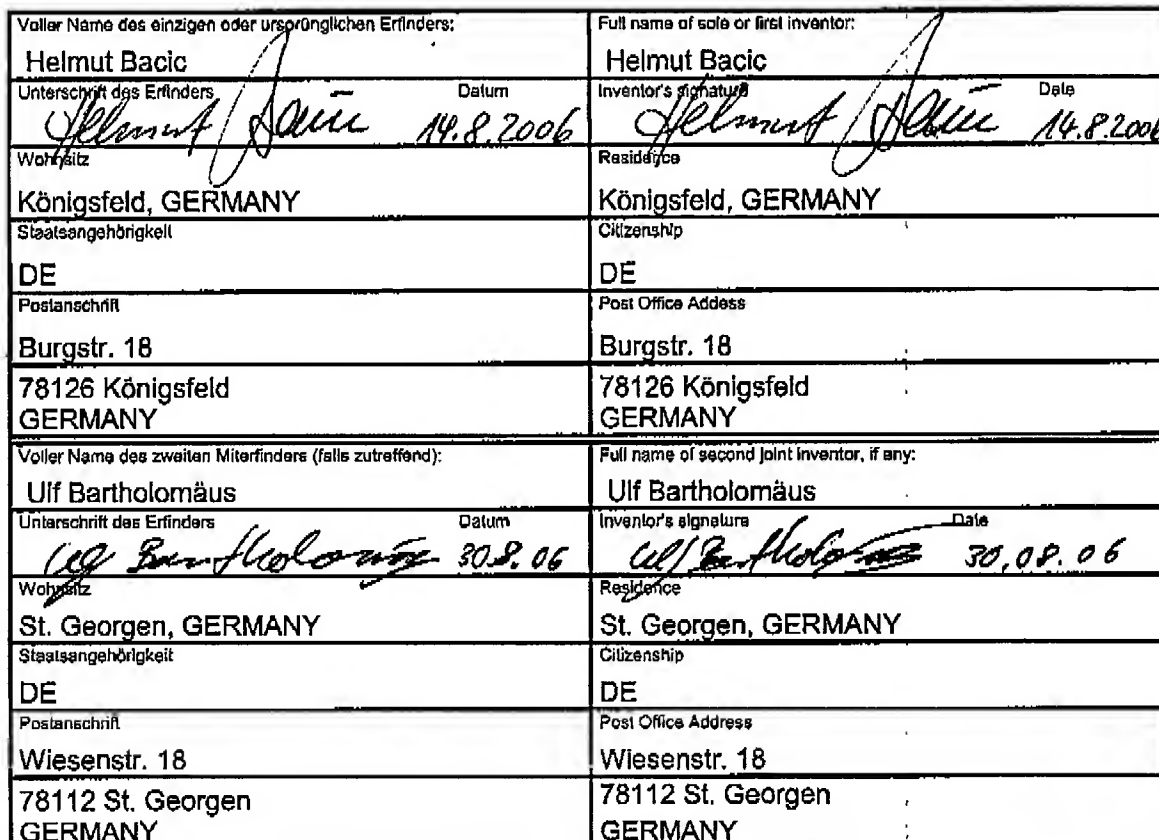 Voller Name des einzigen oder ursprünglichen Erfinders:
Helmut Bacic
Unterschrift des Erfinders Datum
Helmut Bacic 14.8.2006
Wohnsitz
Königsfeld, GERMANY
Staatsangehörigkeit
DE
Postanschrift
Burgstr. 18
78126 Königsfeld
GERMANY
Voller Name des zweiten Miterfinders (falls zutreffend):
Ulf Bartholomäus
Unterschrift des Erfinders Datum
Ulf Bartholomäus 30.8.06
Wohnsitz
St. Georgen, GERMANY
Staatsangehörigkeit
DE
Postanschrift
Wiesenstr. 18
78112 St. Georgen
GERMANY
Full name of sole or first inventor:
Helmut Bacic
Inventor's signature Date
Helmut Bacic 14.8.2006
Residence
Königsfeld, GERMANY
Citizenship
DE
Post Office Addess
Burgstr. 18
78126 Königsfeld
GERMANY
Full name of second joint inventor, if any:
Ulf Bartholomäus
Inventor's signature Date
Ulf Bartholomäus 30.08.06
Residence
St. Georgen, GERMANY
Citizenship
DE
Post Office Address
Wiesenstr. 18
78112 St. Georgen
GERMANY